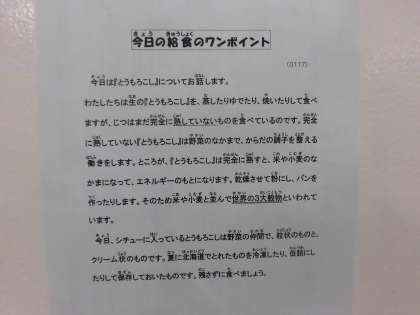 今日の給食のワンポイント
(0117)
今日は『とうもろこし』についてお話します。
わたしたちは生の『とうもろこし』を、蒸したりゆでたり、焼いたりして食べ
ますが、じつはまだ完全に熟していないものを食べているのです。完全
に熟していない『とうもろこし』は野菜のなかまで、からだの調子を整える
働きをします。ところが、『とうもろこし』は完全に熟すと、米や小麦のな
かまになって、エネルギーのもとになります。乾燥させて粉にし、パンを
作ったりします。そのため米や小麦と並んで世界の3大穀物といわれて
います。
今日、シチューに入っているとうもろこしは野菜の仲間で、粒状のものと、
クリーム状のものです。夏に北海道でとれたものを冷凍したり、缶詰にし
たりして保存しておいたものです。残さずに食べましょう。